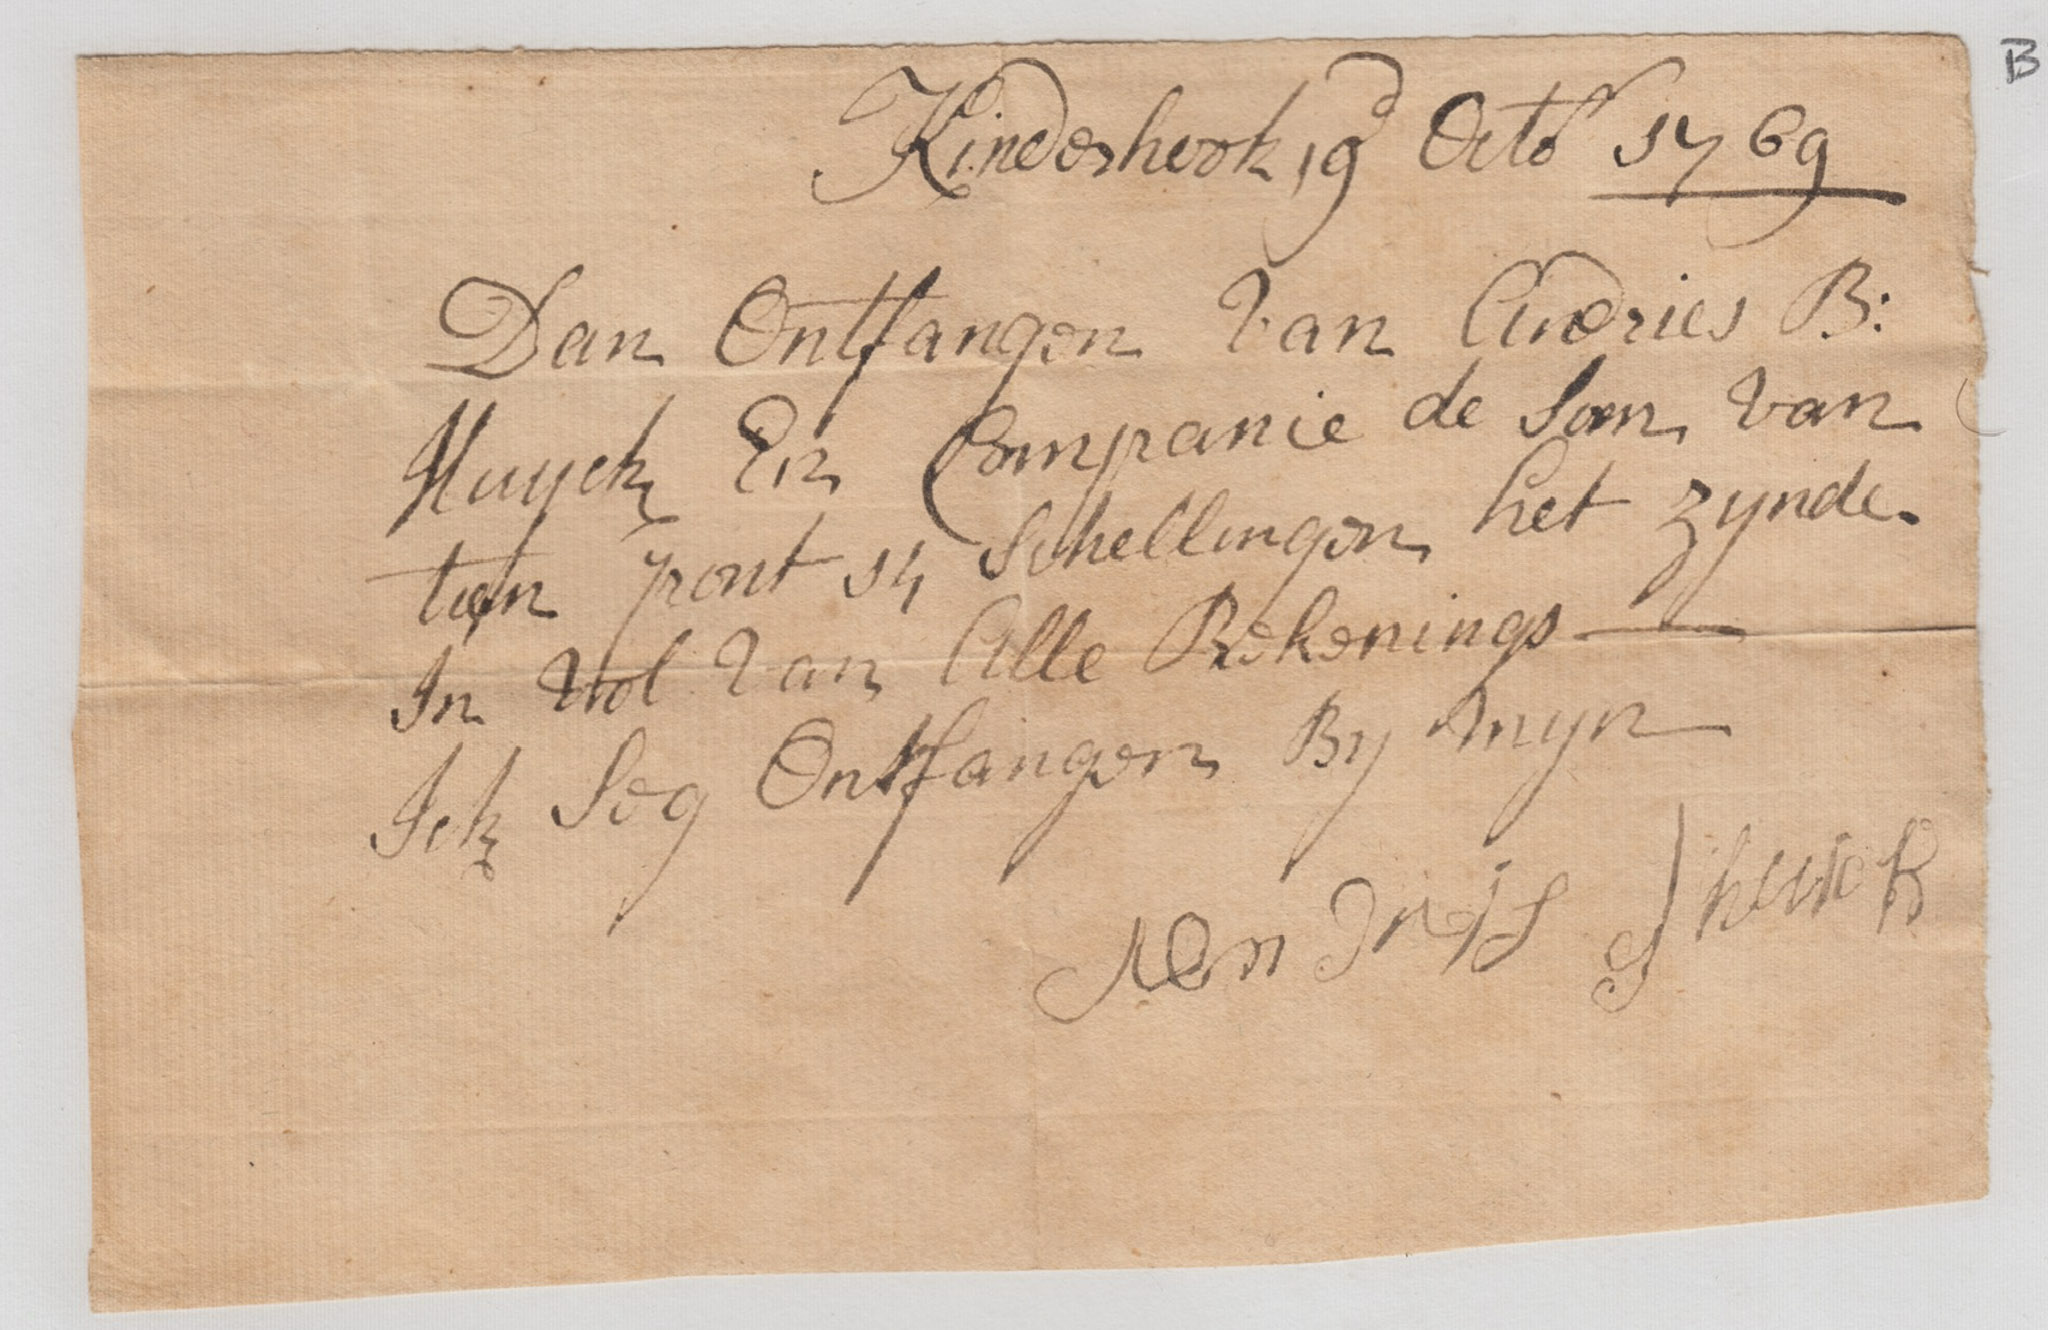 B
Kinderhook 19d Octbr 1769
Dan Ontfangen Van Andries B:
Huyck En Companie de Som van
tien pont 14 Schellingen het zynde
In Vol Van Alle Rekenings
Ick Seg Ontfangen By Myn